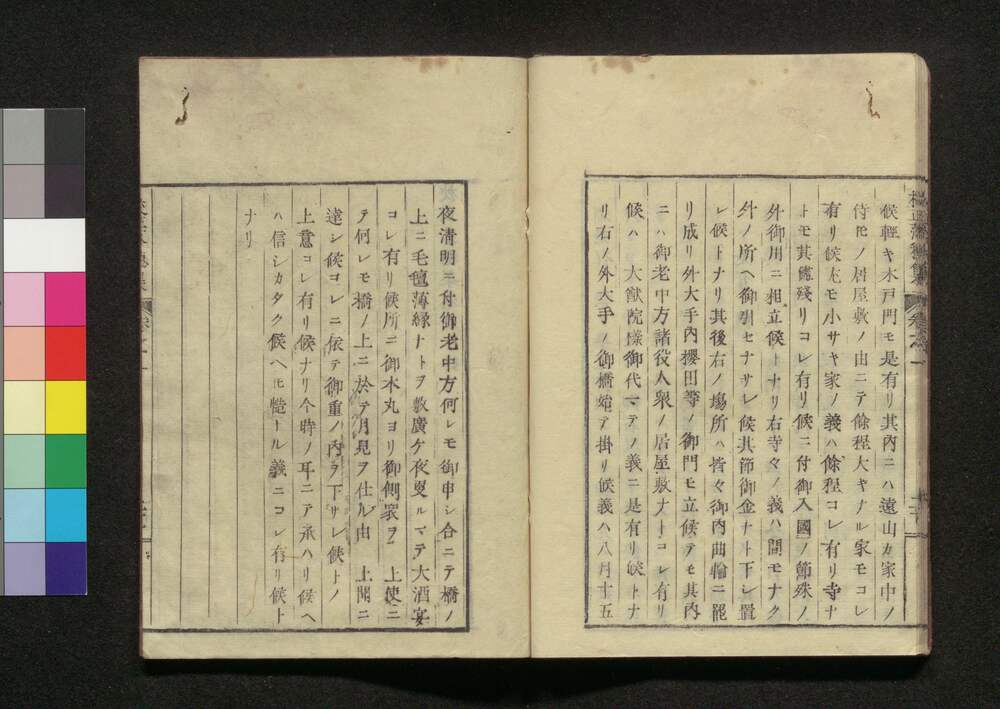 候輕キ木戸門モ是有リ其内ニハ遠山カ家中ノ
侍𪜈ノ居屋敷ノ由ニテ餘程大キナル家モコレ
有リ候ヘ𪜈小サキ家ノ義ハ餘程コレ有リ寺ナ
トモ其儘殘リコレ有リ候ニ付御入國ノ節殊ノ
外御用ニ相立候トナリ右寺々ノ義ハ間モナク
外ノ所ヘ御引セナサレ候其節御金ナト下シ置
レ候トナリ其後右ノ場所ハ皆々御内曲輪ニ罷
リ成リ外大手内櫻田等ノ御門モ立候テモ其内
ニハ御老中方諸役人衆ノ居屋敷ナトコレ有リ
候ハ 大猷院様御代マテノ義ニ是有リ候トナ
リ右ノ外大手ノ御橋始テ掛リ候義ハ八月十五
夜淸明ニ付御老中方何レモ御申シ合ニテ橋ノ
上ニ毛氈薄縁ナトヲ敷廣ケ夜更ルマテ大酒宴
コレ有リ候所ニ御本丸ヨリ御側衆ヲ 上使ニ
テ何レモ橋ノ上ニ於テ月見ヲ仕ル由 上聞ニ
達シ候コレニ依テ御重ノ内ヲ下サレ候トノ
上意コレ有リ候ナリ今時ノ耳ニテ承ハリ候ヘ
ハ信シカタク候ヘ𪜈慥ナル義ニコレ有リ候ト
ナリ